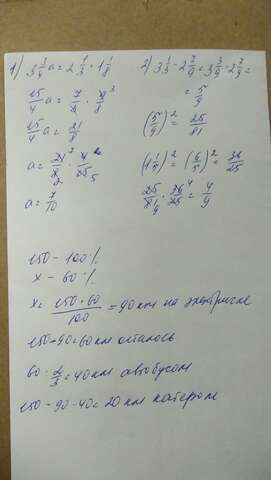 1) 3 3/4 a = 2 1/3 · 1 1/8
15/4 a = 7/3 · 9/8
15/4 a = 21/8
a = 21/8 · 4/15
a = 7/10
2) 3 1/3 - 2 7/9 = 3 3/9 - 2 7/9 =
= 5/9
(5/9)² = 25/81
(1 1/5)² = (6/5)² = 36/25
25/81 · 36/25 = 4/9
150 - 100 %
x - 60 %
x = 150 · 60 / 100 = 90 км на электричке
150 - 90 = 60 км осталось
60 · 2/3 = 40 км автобусом
150 - 90 - 40 = 20 км катером